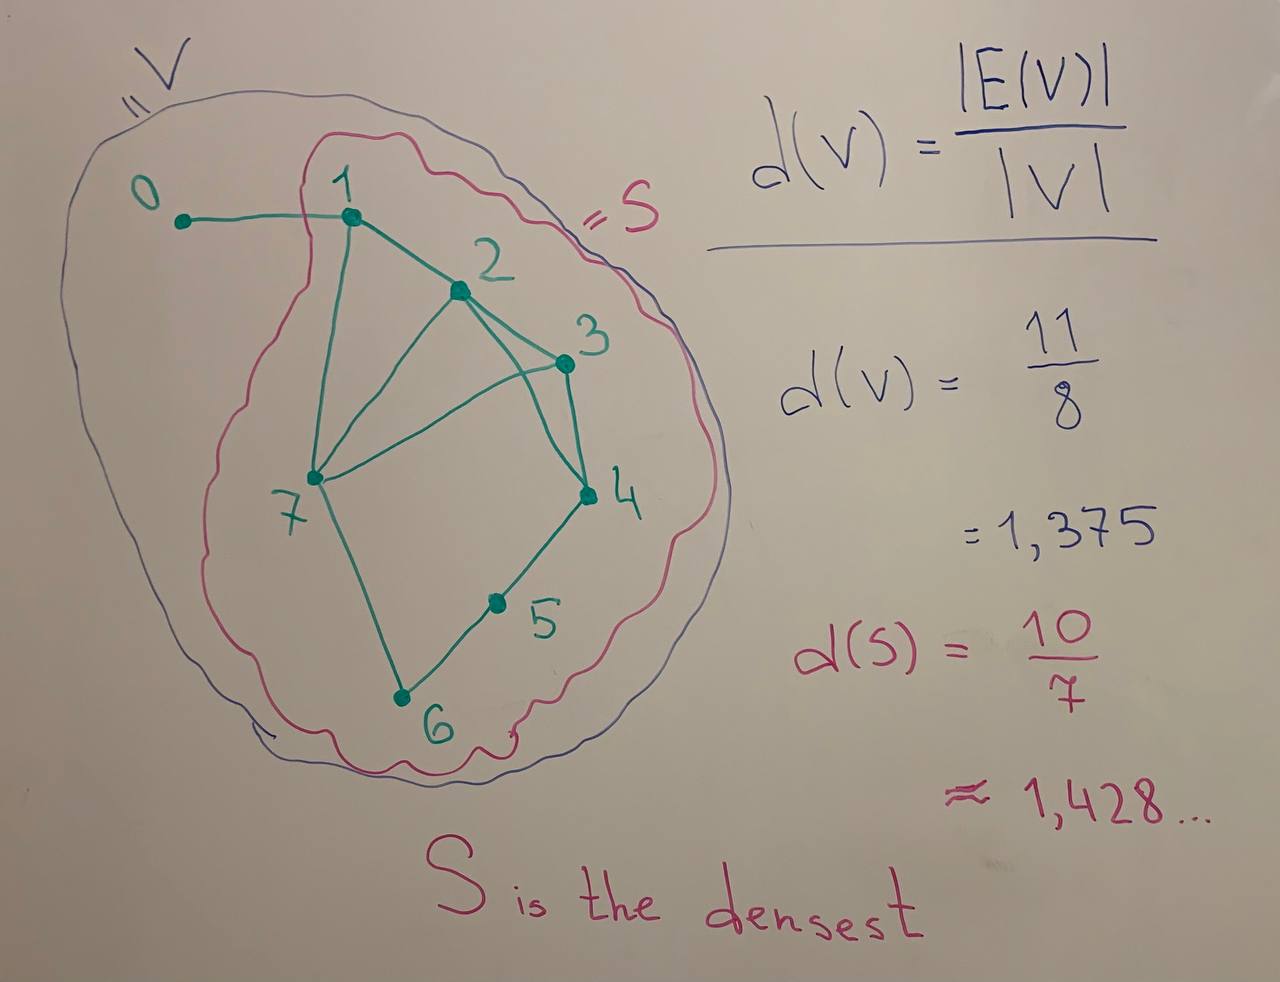 V
=
0
1
= S
2
3
7
4
5
6
d(V) = |E(V)| / |V|
d(V) = 11 / 8
= 1,375
d(S) = 10 / 7
≈ 1,428...
S is the densest